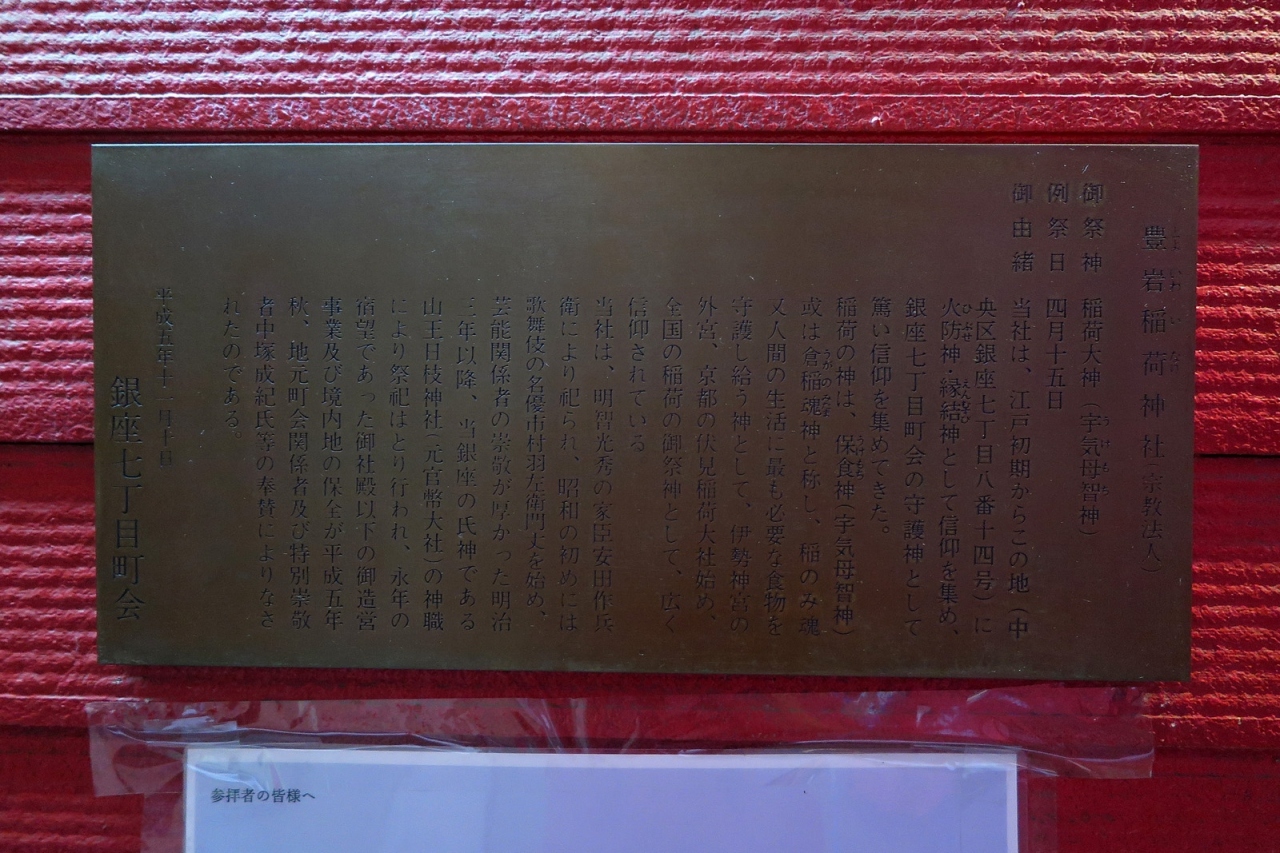 豊岩稲荷神社（宗教法人）
御祭神 稲荷大神（宇気母智神）
例祭日 四月十五日
御由緒 当社は、江戸初期からこの地（中
央区銀座七丁目八番十四号）に
火防神・縁結神として信仰を集め、
銀座七丁目町会の守護神として
篤い信仰を集めてきた。
稲荷の神は、保食神（宇気母智神）
或は倉稲魂神と称し、稲のみ魂
又人間の生活に最も必要な食物を
守護し給う神として、伊勢神宮の
外宮、京都の伏見稲荷大社始め、
全国の稲荷の御祭神として、広く
信仰されている
当社は、明智光秀の家臣安田作兵
衛により祀られ、昭和の初めには
歌舞伎の名優市村羽左衛門丈を始め、
芸能関係者の崇敬が厚かった明治
三年以降、当銀座の氏神である
山王日枝神社（元官幣大社）の神職
により祭祀はとり行われ、永年の
宿望であった御社殿以下の御造営
事業及び境内地の保全が平成五年
秋、地元町会関係者及び特別崇敬
者中塚成紀氏等の奉賛によりなさ
れたのである。
平成五年十一月十日
銀座七丁目町会
参拝者の皆様へ